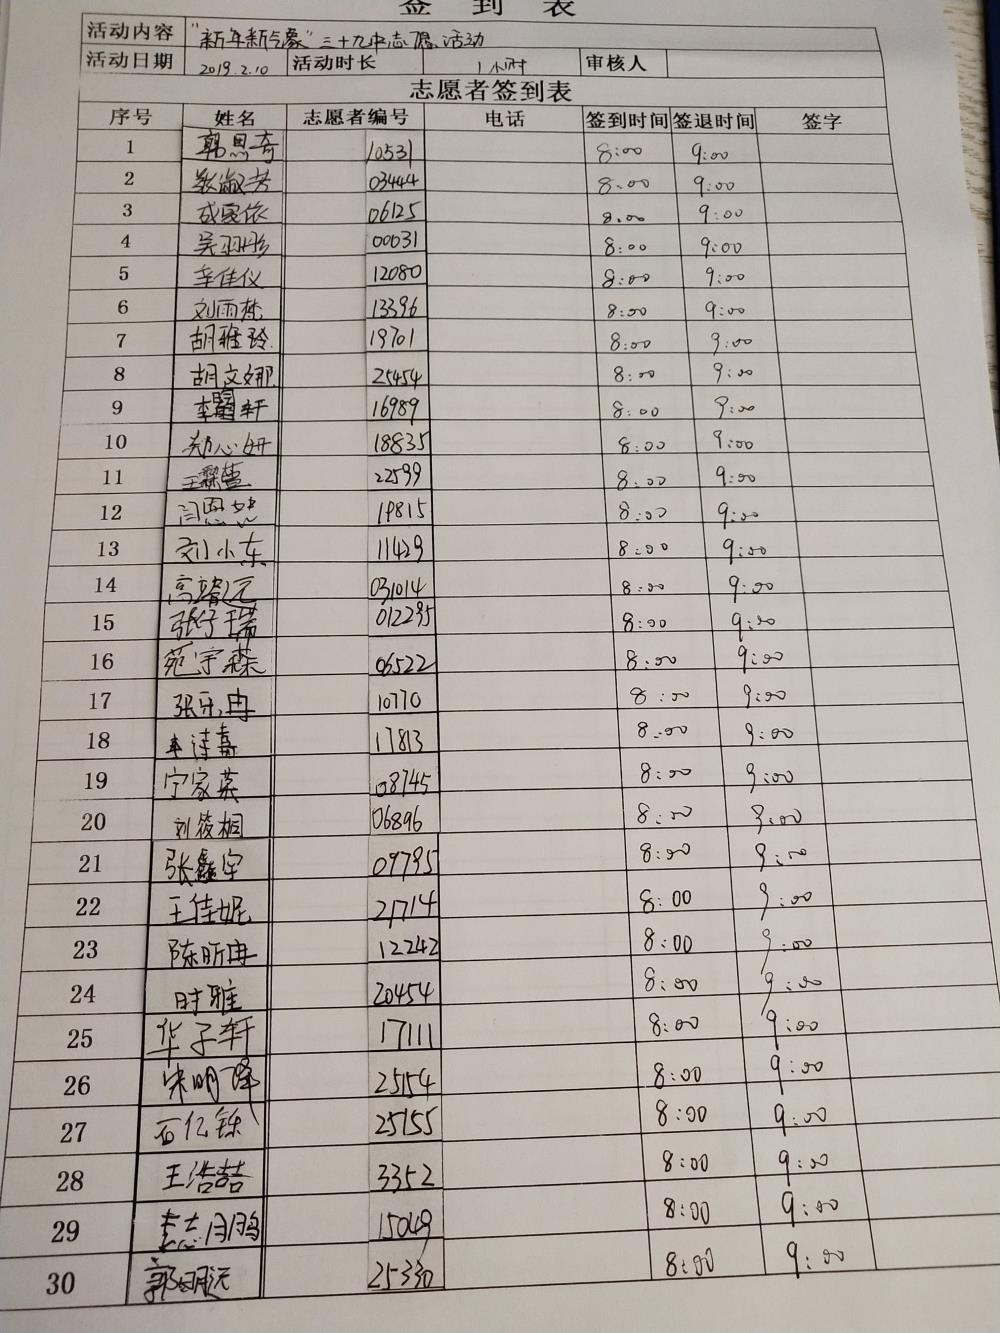 签到表
活动内容 "新年新气象"三十九中志愿活动
活动日期 2019.2.10 活动时长 1小时 审核人
志愿者签到表
序号 姓名 志愿者编号 电话 签到时间 签退时间 签字
1 郭思奇 10531 8:00 9:00
2 张淑芳 03444 8:00 9:00
3 06125 8:00 9:00
4 吴羽彤 00031 8:00 9:00
5 李佳仪 12080 8:00 9:00
6 刘雨梵 13396 8:00 9:00
7 胡雅玲 19701 8:00 9:00
8 胡文娜 25454 8:00 9:00
9 轩 16989 8:00 9:00
10 郑心妍 18835 8:00 9:00
11 王霖萱 22599 8:00 9:00
12 闫恩 19815 8:00 9:00
13 刘小东 11429 8:00 9:00
14 高远 031014 8:00 9:00
15 张仔瑞 012295 8:00 9:00
16 范宇森 06522 8:00 9:00
17 张乐冉 10770 8:00 9:00
18 诗嘉 17813 8:00 9:00
19 宁家英 08745 8:00 9:00
20 刘筱桐 06896 8:00 9:00
21 张鑫宇 09795 8:00 9:00
22 王佳妮 21714 8:00 9:00
23 陈昕冉 12242 8:00 9:00
24 时雅 20454 8:00 9:00
25 华子轩 17111 8:00 9:00
26 宋明泽 25154 8:00 9:00
27 石亿铄 25155 8:00 9:00
28 王浩喆 3352 8:00 9:00
29 李志鹏 15049 8:00 9:00
30 郭明远 25330 8:00 9:00